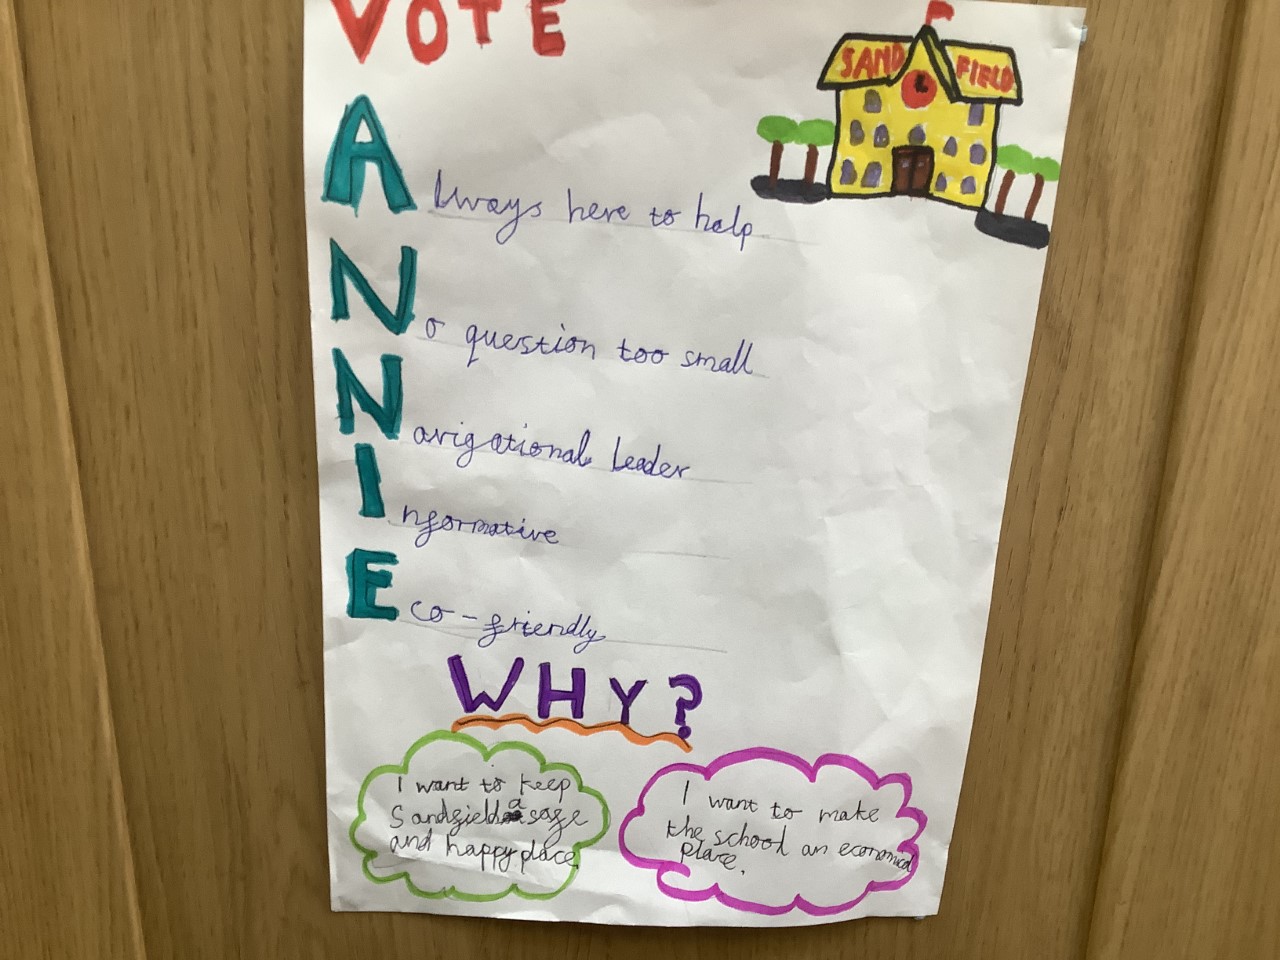 VOTE
SAND FIELD
Always here to help
No question too small
Navigational leader
Informative
Eco-friendly
WHY?
I want to keep
Sandfield a safe
and happy place.
I want to make
the school an economical
place.